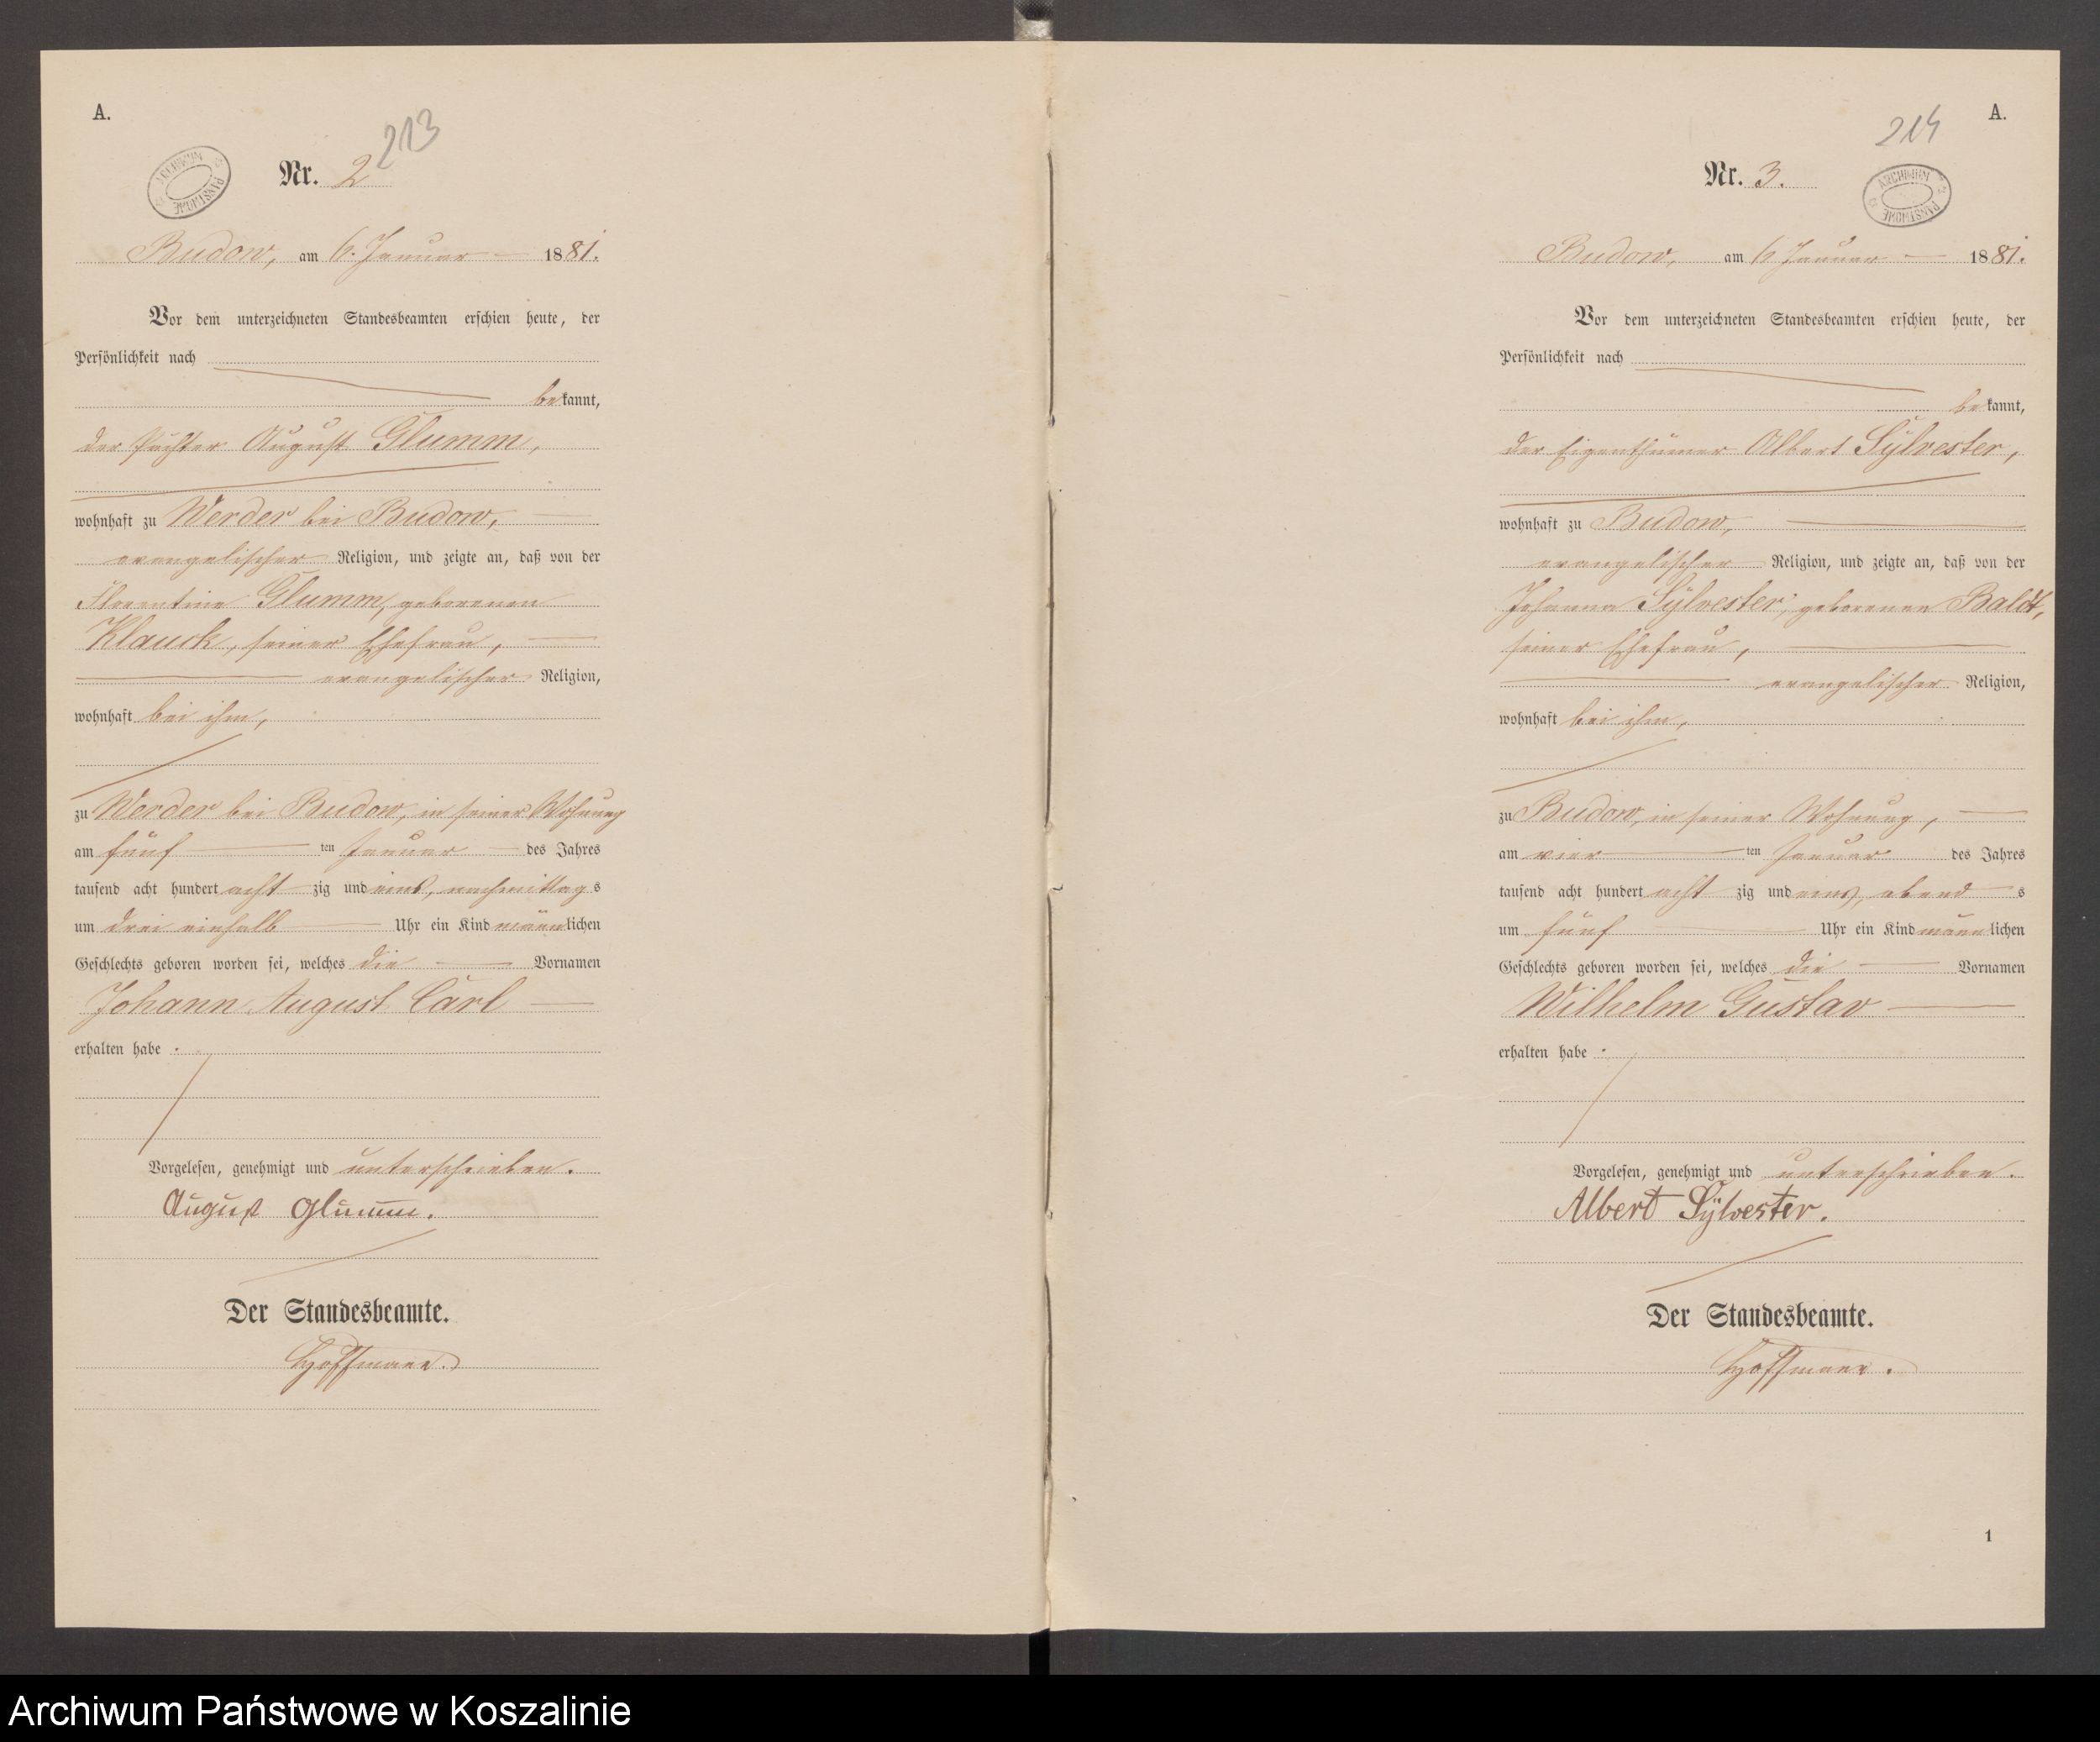 A.
213
ARCHIWUM PAŃSTWOWE
Nr. 2
Budow, am 6. Januar 1881.
Vor dem unterzeichneten Standesbeamten erschien heute, der
Persönlichkeit nach
bekannt,
der Pächter August Glumm,
wohnhaft zu Werder bei Budow,
evangelischer Religion, und zeigte an, daß von der
Florentine Glumm, geborenen
Klauck, seiner Ehefrau,
evangelischer Religion,
wohnhaft bei ihm,
zu Werder bei Budow, in seiner Wohnung
am fünf ten Januar des Jahres
tausend acht hundert acht zig und eins, nachmittag s
um drei einhalb Uhr ein Kind männlichen
Geschlechts geboren worden sei, welches die Vornamen
Johann August Carl
erhalten habe .
Vorgelesen, genehmigt und unterschrieben.
August Glumm.
Der Standesbeamte.
Hoffmann.
A.
214
ARCHIWUM PAŃSTWOWE
Nr. 3.
Budow, am 6 Januar 1881.
Vor dem unterzeichneten Standesbeamten erschien heute, der
Persönlichkeit nach
bekannt,
der Eigenthümer Albert Sylvester,
wohnhaft zu Budow,
evangelischer Religion, und zeigte an, daß von der
Johanna Sylvester, geborenen Baldt,
seiner Ehefrau,
evangelischer Religion,
wohnhaft bei ihm,
zu Budow, in seiner Wohnung,
am vier ten Januar des Jahres
tausend acht hundert acht zig und eins, abend s
um fünf Uhr ein Kind männlichen
Geschlechts geboren worden sei, welches die Vornamen
Wilhelm Gustav
erhalten habe .
Vorgelesen, genehmigt und unterschrieben.
Albert Sylvester.
Der Standesbeamte.
Hoffmann.
1
Archiwum Państwowe w Koszalinie